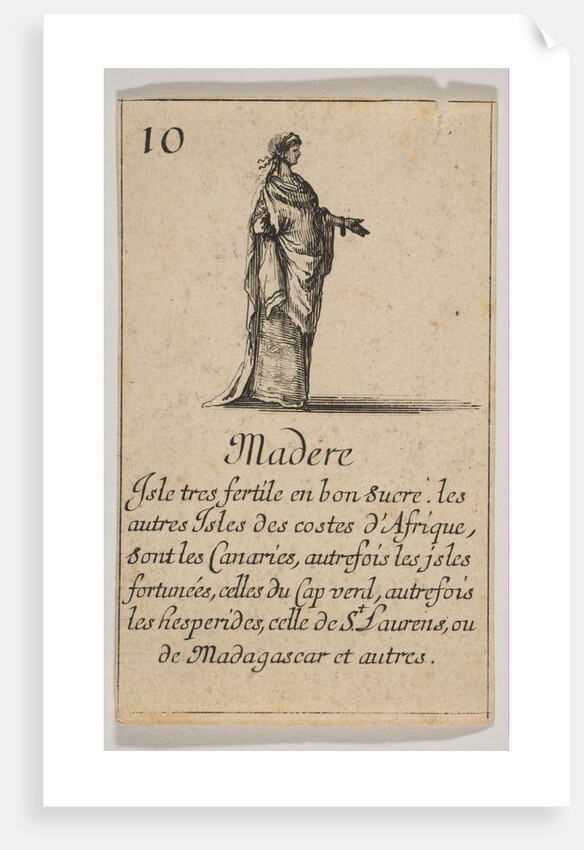 10
Madere
Isle tres fertile en bon sucre. les
autres Isles des costes d'Afrique,
sont les Canaries, autrefois les jsles
fortunées, celles du Cap verd, autrefois
les hesperides, celle de S.t Laurens, ou
de Madagascar et autres.